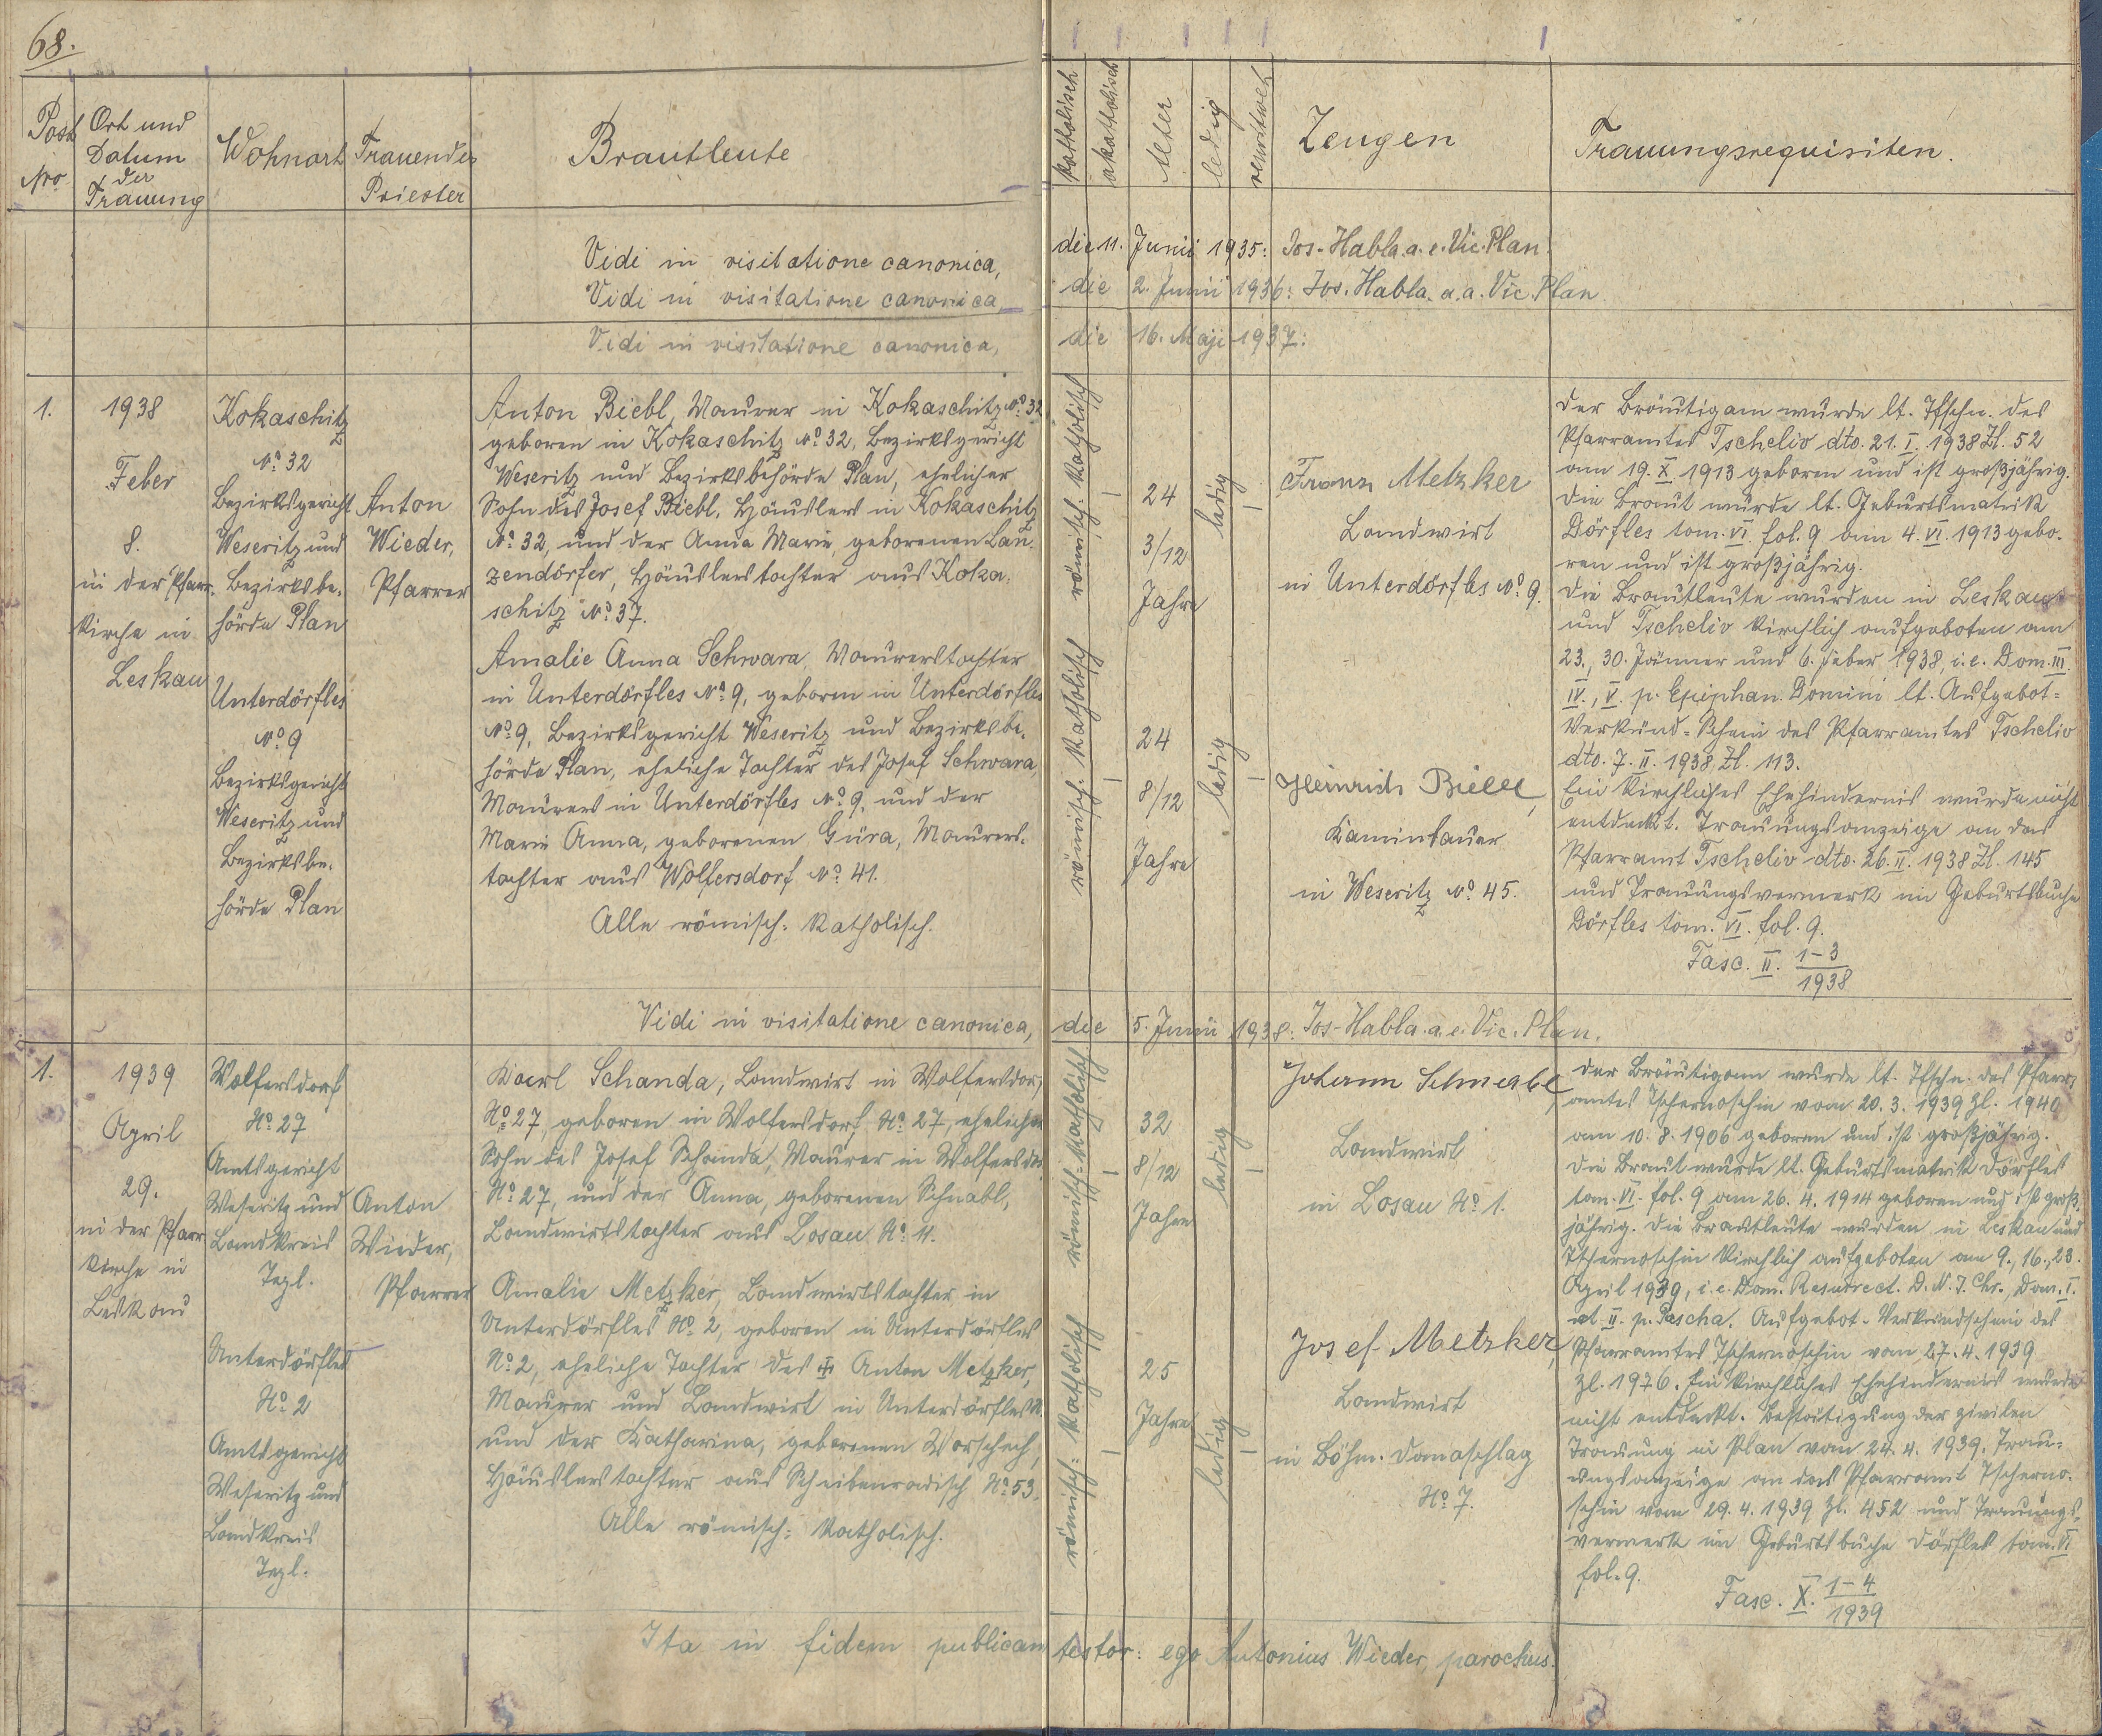 68.
Post
Nro
Ort und
Datum
der
Trauung
Wohnort
Trauender
Priester
Brautleute
katholisch
akatholisch
Alter
ledig
verwitwet
Zeugen
Trauungsrequisiten.
Vidi in visitatione canonica, die 11. Junii 1935: Jos. Habla. a. e. Vic. Plan.
Vidi in visitatione canonica, die 2. Junii 1936: Jos. Habla. a. a. Vic. Plan
Vidi in visitatione canonica, die 16. Maji 1937:
1.
1938
Feber
8.
in der Pfarr-
kirche in
Leskau
Kokaschitz
No. 32
Bezirksgericht
Weseritz und
Bezirksbe-
hörde Plan
Unterdörfles
No. 9
Bezirksgericht
Weseritz und
Bezirksbe-
hörde Plan
Anton
Wieder,
Pfarrer
Anton Biebl, Maurer in Kokaschitz No. 32
geboren in Kokaschitz No. 32, Bezirksgericht
Weseritz und Bezirksbehörde Plan, ehelicher
Sohn des Josef Biebl, Häuslers in Kokaschitz
No. 32, und der Anna Marie, geborenen Lan-
zendörfer, Häuslerstochter aus Koka-
schitz No. 37.
Amalie Anna Schwara, Maurerstochter
in Unterdörfles No. 9, geboren in Unterdörfles
No. 9, Bezirksgericht Weseritz und Bezirksbe-
hörde Plan, eheliche Tochter des Josef Schwara,
Maurers in Unterdörfles No. 9, und der
Marie Anna, geborenen Güra, Maurers-
tochter aus Wolfersdorf No. 41.
Alle römisch-katholisch.
römisch-katholisch
römisch-katholisch
24
3/12
Jahre
24
8/12
Jahre
ledig
ledig
Franz Metzker
Landwirt
in Unterdörfles No. 9.
Heinrich Biebl,
Kaminbauer
in Weseritz No. 45.
Der Bräutigam wurde lt. Tfschn. des
Pfarramtes Tscheliv dto. 21. I. 1938 Zl. 52
am 19. X. 1913 geboren und ist großjährig.
Die Braut wurde lt. Geburtsmatrik
Dörfles tom. VI. fol. 9 am 4. VI. 1913 gebo-
ren und ist großjährig.
Die Brautleute wurden in Leskau
und Tscheliv kirchlich aufgeboten am
23., 30. Jänner und 6. Feber 1938, i. e. Dom. III.
IV., V. p. Epiphan. Domini lt. Aufgebot-
Verkünd-Schein des Pfarramtes Tscheliv
dto. 7. II. 1938 Zl. 113.
Ein kirchliches Ehehindernis wurde nicht
entdeckt. Trauungsanzeige an das
Pfarramt Tscheliv dto. 26. II. 1938 Zl. 145
und Trauungsvermerk im Geburtsbuche
Dörfles tom. VI. fol. 9.
Fasc. II. 1-3
1938
Vidi in visitatione canonica, die 5. Junii 1938: Jos. Habla. a. e. Vic. Plan.
1.
1939
April
29.
in der Pfarr
kirche in
Leskau
Wolfersdorf
No. 27
Amtsgericht
Weseritz und
Landkreis
Tepl.
Unterdörfles
No. 2
Amtsgericht
Weseritz und
Landkreis
Tepl.
Anton
Wieder,
Pfarrer
Karl Schanda, Landwirt in Wolfersdorf
No. 27, geboren in Wolfersdorf No. 27, ehelicher
Sohn des Josef Schanda, Maurer in Wolfersdorf
No. 27, und der Anna, geborenen Schnabl,
Landwirtstochter aus Losau No. 11.
Amalie Metzker, Landwirtstochter in
Unterdörfles No. 2, geboren in Unterdörfles
No. 2, eheliche Tochter des Anton Metzker,
Maurer und Landwirt in Unterdörfles
und der Katharina, geborenen Worschech,
Häuslerstochter aus Scheibenradisch No. 53.
Alle römisch-katholisch.
römisch-katholisch
römisch-katholisch
32
8/12
Jahre
25
Jahre
ledig
ledig
Johann Schnabl,
Landwirt
in Losau No. 1.
Josef Metzker,
Landwirt
in Böhm. Damaschlag
No. 7.
Der Bräutigam wurde lt. Tfschn. des Pfarr-
amtes Tschernoschin vom 20. 3. 1939 Zl. 1940
am 10. 8. 1906 geboren und ist großjährig.
Die Braut wurde lt. Geburtsmatrik Dörfles
tom. VI. fol. 9 am 26. 4. 1914 geboren und ist groß-
jährig. Die Brautleute wurden in Leskau und
Tschernoschin kirchlich aufgeboten am 9., 16., 23.
April 1939, i. e. Dom. Resurrect. D. N. J. Chr., Dom. I.
et II. p. Pascha. Aufgebot-Verkündschein des
Pfarramtes Tschernoschin vom 27. 4. 1939
Zl. 1976. Ein kirchliches Ehehindernis wurde
nicht entdeckt. Bestätigung der zivilen
Trauung in Plan vom 24. 4. 1939. Trau-
ungsanzeige an das Pfarramt Tscherno-
schin vom 29. 4. 1939 Zl. 452 und Trauungs-
vermerk im Geburtsbuche Dörfles tom. VI
fol. 9.
Fasc. X. 1-4
1939
Ita in fidem publicam testor: ego Antonius Wieder, parochus.